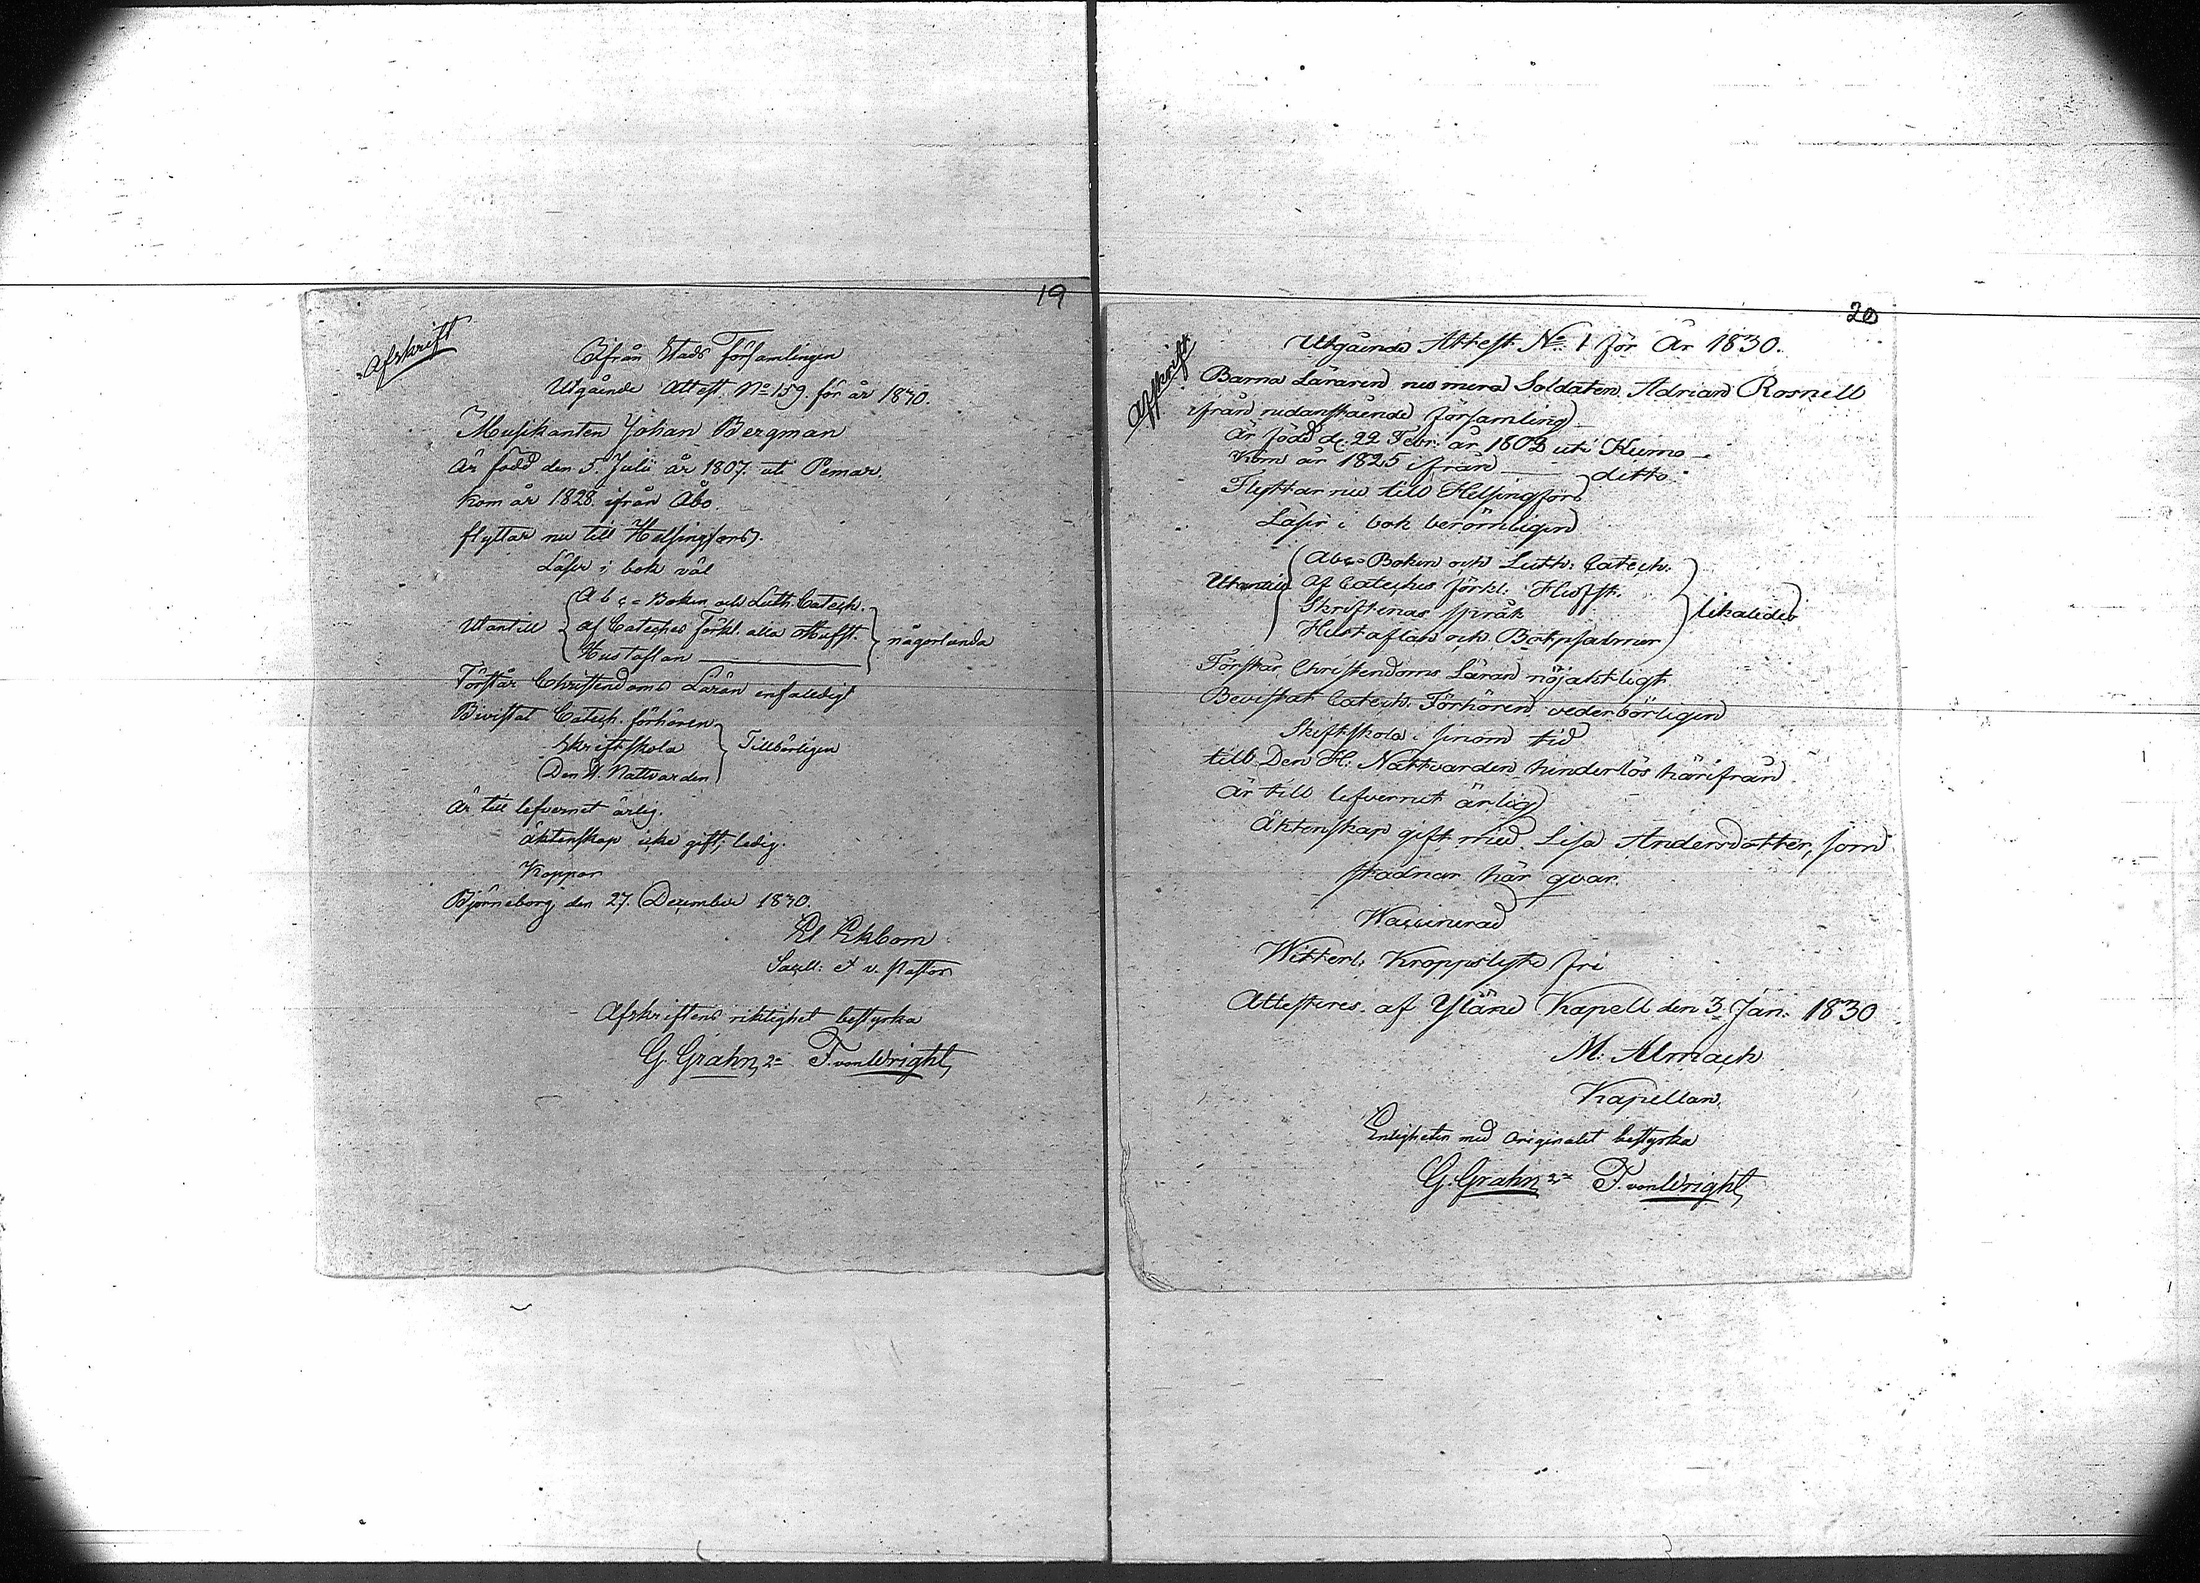 19
Afskrift
Ifrån Stads Församlingen
Utgående Attest No 159 för år 1830.
Musikanten Johan Bergman
är född den 5. Julii år 1807. uti Pemar.
kom år 1828. ifrån Åbo.
flyttar nu till Helsingfors.
Läser i bok väl
Utantill
Abc=Boken och Luth. Catech.
af Cateches Förkl. alla Hufst.
Hustaflan
någorlunda
Förstår Christendoms Läran enfaldigt
Bevistat Catech. förhören
Skriftskola
Den H. Nattvarden
Tillbörligen
Är till lefvernet ärlig.
äktenskap icke gift; ledig.
Koppor
Björneborg den 27. December 1830.
El Ekbom
Sacell: et v. Pastor
Afskriftens riktighet bestyrka
G. Grahn, 2= F. von Wright,
20
Afskrift
Utgående Attest No 1 för År 1830.
Barna Läraren nu mera Soldaten Adrian Rosnell
ifrån nedanstående församling
Är född d. 22 Febr. år 1802 uti Kumo
Kom år 1825 ifrån ditto
Flyttar nu till Helsingfors
Läser i bok berömligen
Utantill
Abc=Boken och Luth: Catech.
af Cateches förkl. Hufst.
Skriftenes språk
Hustaflan och Botpsalmer
likaledes
Förstår Christendoms Läran nöjaktligt
Bevistat Catech. Förhören vederbörligen
Skriftskola i sinom tid
till Den H: Nattvarden hinderlös härifrån
är till lefvernet ärlig
Äktenskap gift med Lisa Andersdotter, som
stadnar här qvar.
Waccinerad
Witterl: Kroppslyte fri
Attesteres af Yläne Kapell den 3 Jan: 1830
M: Almach
Kapellan.
Enligheten med originalet bestyrka
G. Grahn 2= F. von Wright,